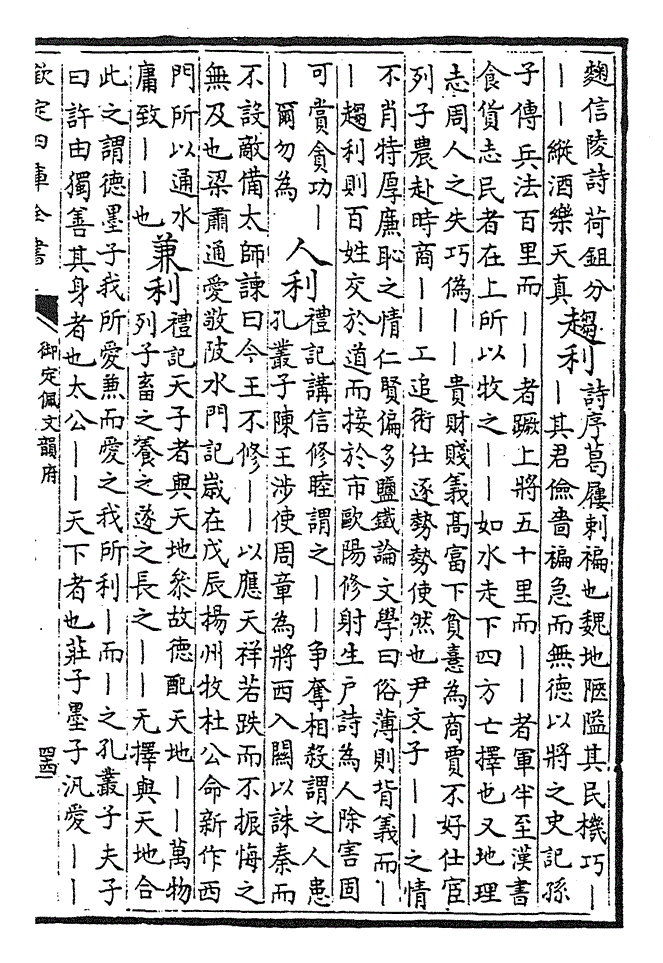 麴信陵詩荷鉏分
丨丨縱酒樂天真
趨利
詩序葛屨刺褊也魏地陿隘其民機巧丨
丨其君儉嗇褊急而無德以將之史記孫
子傳兵法百里而丨丨者蹶上將五十里而丨丨者軍半至漢書
食貨志民者在上所以牧之丨丨如水走下四方亡擇也又地理
志周人之失巧偽丨丨貴財賤義髙富下貧憙為商賈不好仕宦
列子農赴時商丨丨工追術仕逐勢勢使然也尹文子丨丨之情
不肖特厚廉恥之情仁賢偏多鹽鐵論文學曰俗薄則背義而丨
丨趨利則百姓交於道而接於市歐陽修射生户詩為人除害固
可賞貪功丨
丨爾勿為
人利
禮記講信修睦謂之丨丨爭奪相殺謂之人患
孔叢子陳王涉使周章為將西入關以誅秦而
不設敵備太師諫曰今王不修丨丨以應天祥若跌而不振悔之
無及也梁肅通愛敬陂水門記歲在戊辰揚州牧杜公命新作西
門所以通水
庸致丨丨也
兼利
禮記天子者與天地叅故德配天地丨丨萬物
列子畜之養之遂之長之丨丨无擇與天地合
此之謂德墨子我所愛兼而愛之我所利丨而丨之孔叢子夫子
曰許由獨善其身者也太公丨丨天下者也莊子墨子汎愛丨丨
欽定四庫全書
御定佩文韻府